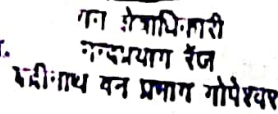 वन क्षेत्राधिकारी
नन्दप्रयाग रेंज
बद्रीनाथ वन प्रभाग गोपेश्वर